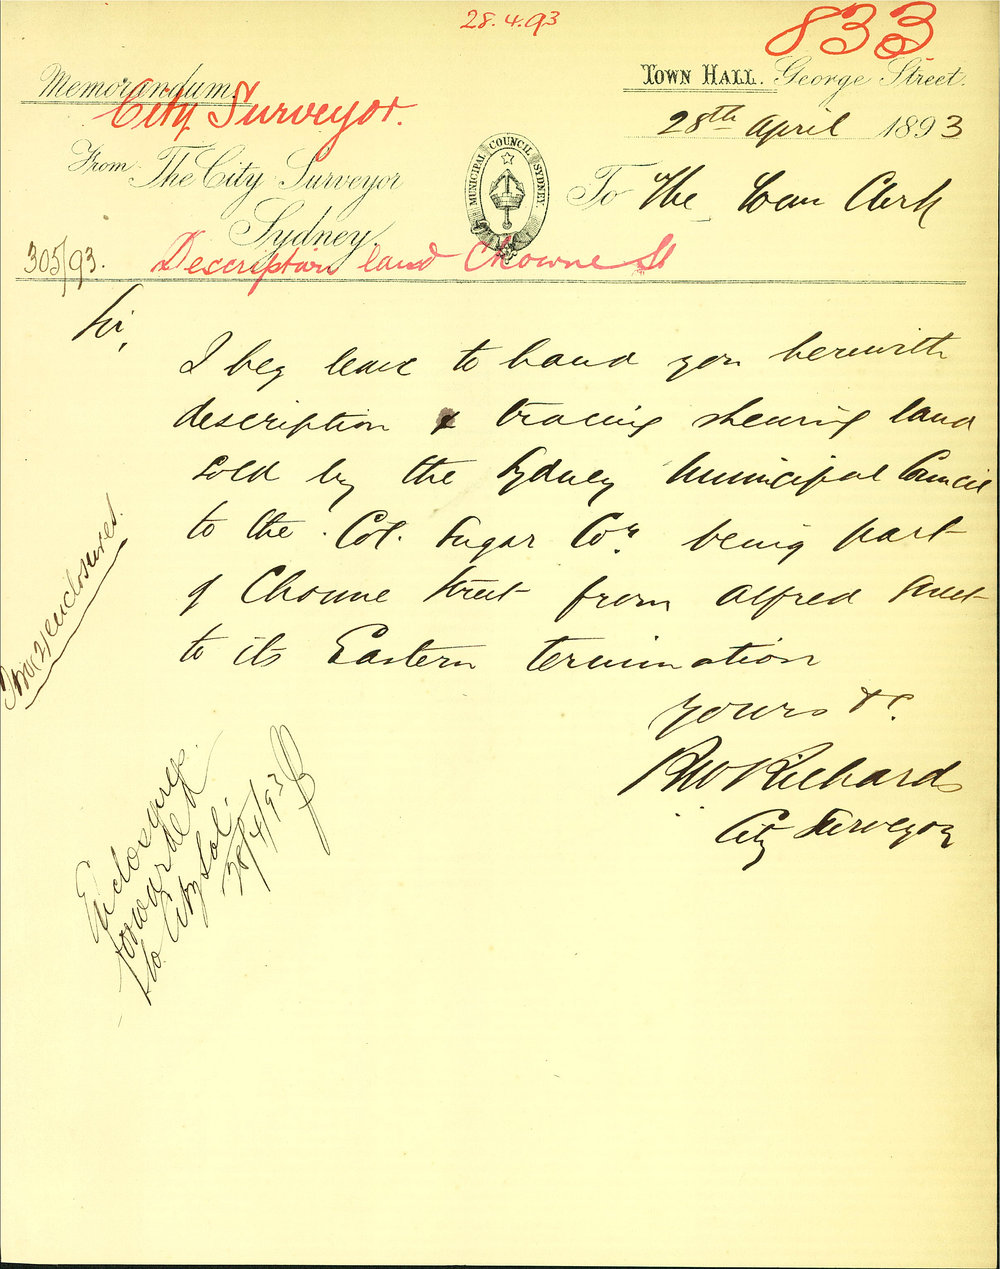 28.4.93
833
Memorandum
City Surveyor.
TOWN HALL. George Street.
28th April 1893
From The City Surveyor
Sydney.
MUNICIPAL COUNCIL SYDNEY
To The Town Clerk
305/93.
Description land Chowne St
Sir,
I beg leave to hand you herewith
description & tracing shewing land
sold by the Sydney Municipal Council
to the Col. Sugar Coy being part
of Chowne Street from Alfred Street
to its Eastern termination
Yours &c.
RW Richards
City Surveyor
enclosures.
Enclosure
forwarded
to City Sol.
28/4/93